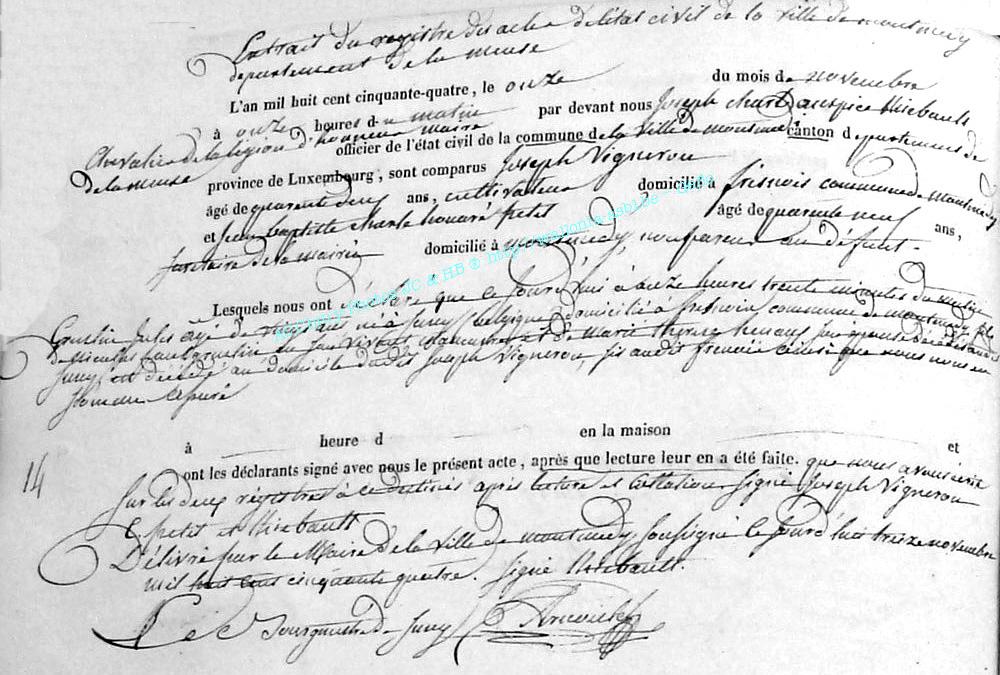 Extrait du registre des actes de l'état civil de la ville de montmédy
département de la meuse
L'an mil huit cent cinquante-quatre, le onze du mois de novembre
à onze heures du matin par devant nous Joseph Charl auspice thiebault
Chevalier de la légion d'honneur maire officier de l'état civil de la commune de la ville de montmédy canton département de
de la meuse
province de Luxembourg, sont comparus Joseph Vigneron
âgé de quarante deux ans, cultivateur domicilié à fresnois commune de montmédy
et jean baptiste charle honoré petit âgé de quarante neuf ans,
secrétaire de la mairie domicilié à montmédy, non parens au défunt.
Lesquels nous ont déclaré que ce jourd'hui à onze heures trente minutes du matin
jules agé de vingt ans né à jamoy (belgique) domicilié à fresnois, commune de montmédy fils
de nicolas et de marie thérèse
est décédé au domicile dudit Joseph Vigneron, sis audit fresnois ainsi que nous nous en
sommes assuré
à heure d en la maison et
ont les déclarants signé avec nous le présent acte, après que lecture leur en a été faite. que nous avons écrit
14
sur les deux régistres à ce destinés après lecture et collation signé Joseph Vigneron
C petit et thiebault
Délivré par le Maire de la ville de montmédy soussigné le jourd'hui treize novembre
mil huit cent cinquante quatre. signé thiebault.
Bourgmestre de